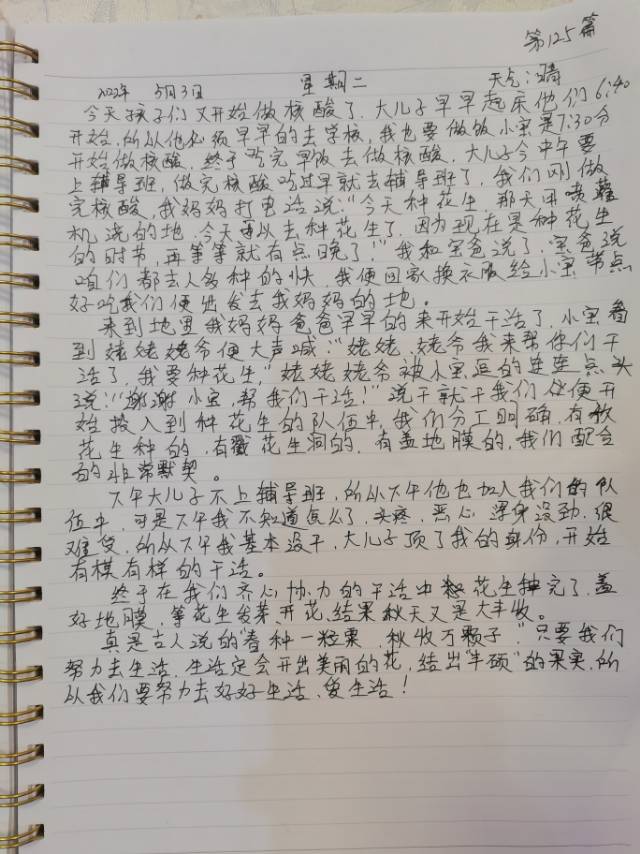 第125篇
2022年 5月3日 星期二 天气:晴
今天孩子们又开始做核酸了,大儿子早早起床他们6:40
开始,所以他必须早早的去学校,我也要做饭小宝是7:30分
开始做核酸,终于吃完早饭去做核酸,大儿子今中午要
上辅导班,做完核酸吃过早就去辅导班了,我们刚做
完核酸,我妈妈打电话说:“今天种花生,那天用喷灌
机浇的地,今天可以去种花生了,因为现在是种花生
的时节,再等等就有点晚了!”我和宝爸说了,宝爸说
咱们都去人多种的快,我便回家换衣服给小宝带点
好吃我们便出发去我妈妈的地。
来到地里我妈妈爸爸早早的来开始干活了,小宝看
到姥姥姥爷便大声喊:“姥姥,姥爷我来帮你们干
活了,我要种花生,”姥姥姥爷被小宝逗的连连点头
说:“谢谢小宝,帮我们干活!”说干就干我们便开
始投入到种花生的队伍中,我们分工明确,有放
花生种的,有戳花生洞的,有盖地膜的,我们配合
的非常默契。
下午大儿子不上辅导班,所以下午他也加入我们的队
伍中,可是下午我不知道怎么了,头疼,恶心,浑身没劲,很
难受,所以下午我基本没干,大儿子顶了我的身份,开始
有模有样的干活。
终于在我们齐心协力的干活中花生种完了,盖
好地膜,等花生发芽、开花,结果秋天又是大丰收。
真是古人说的“春种一粒粟,秋收万颗子”只要我们
努力去生活,生活定会开出美丽的花,结出“丰硕”的果实,所
以我们要努力去好好生活,爱生活!